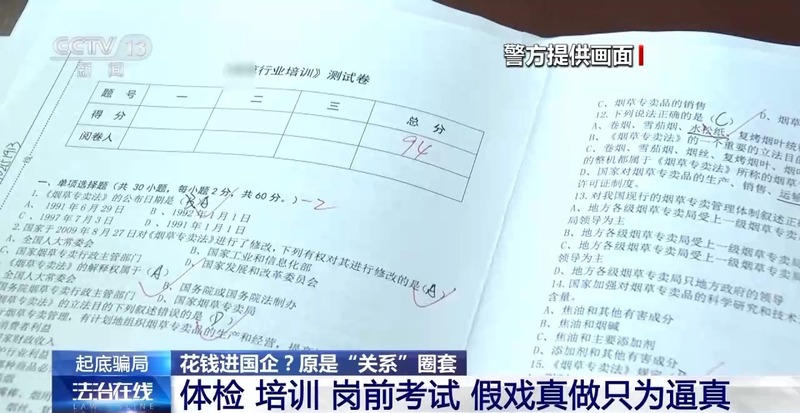 CCTV 13
新闻
警方提供画面
行业培训》测试卷
题号 一 二 三 总分
得分 94
阅卷人
一、单项选择题（共 30 小题，每小题 2 分，共 60 分。） -2
1.《烟草专卖法》的公布日期是（ A）
A、1991 年 6 月 29 日 B、1992 年 1 月 1 日
C、1997 年 7 月 3 日 D、1991 年 1 月 1 日
2.国家于 2009 年 8 月 27 日对《烟草专卖法》进行了修改，下列有权对其进行修改的是（A）
A、全国人大常委会 B、国家工业和信息化部
C、国家烟草专卖行政主管部门 D、国家发展和改革委员会
《烟草专卖法》的解释权属于（A）
全国人大常委会 B、国务院或国务院法制办
国务院烟草专卖行政主管部门 D、国家烟草专卖局
专卖法》的立法目的下列叙述错误的是（D）
专卖管理，有计划地组织烟草专卖品的生产和经营，提
消费者利益
国家财政收入
C、烟草专卖品的销售 D、烟草
12.下列说法正确的是（C）
A、卷烟、雪茄烟、水松纸、复烤烟叶统称
B、《烟草专卖法》的一个重要的立法目的
C、卷烟、雪茄烟、烟丝、复烤烟叶、烟叶
的整机都属于《烟草专卖法》所称的烟草
D、国家对烟草专卖品的生产、销售、运输
许可证制度。
13.对我国现行的烟草专卖管理体制叙述正确
A、地方各级烟草专卖局受上一级烟草专卖局
局领导为主
B、地方各级烟草专卖局受上一级烟草专卖
C、地方各级烟草专卖局受上一级烟草专卖
领导为主
D、地方各级烟草专卖局只地方政府的领导
14.国家加强对烟草专卖品的科学研究和技术
含量。
A、焦油和其他有害成分
B、焦油和烟碱
C、焦油和主要添加剂
D、添加剂和其他有害成分
15.《烟草专卖法》规定
起底骗局
法治在线
花钱进国企？原是“关系”圈套
体检 培训 岗前考试 假戏真做只为逼真